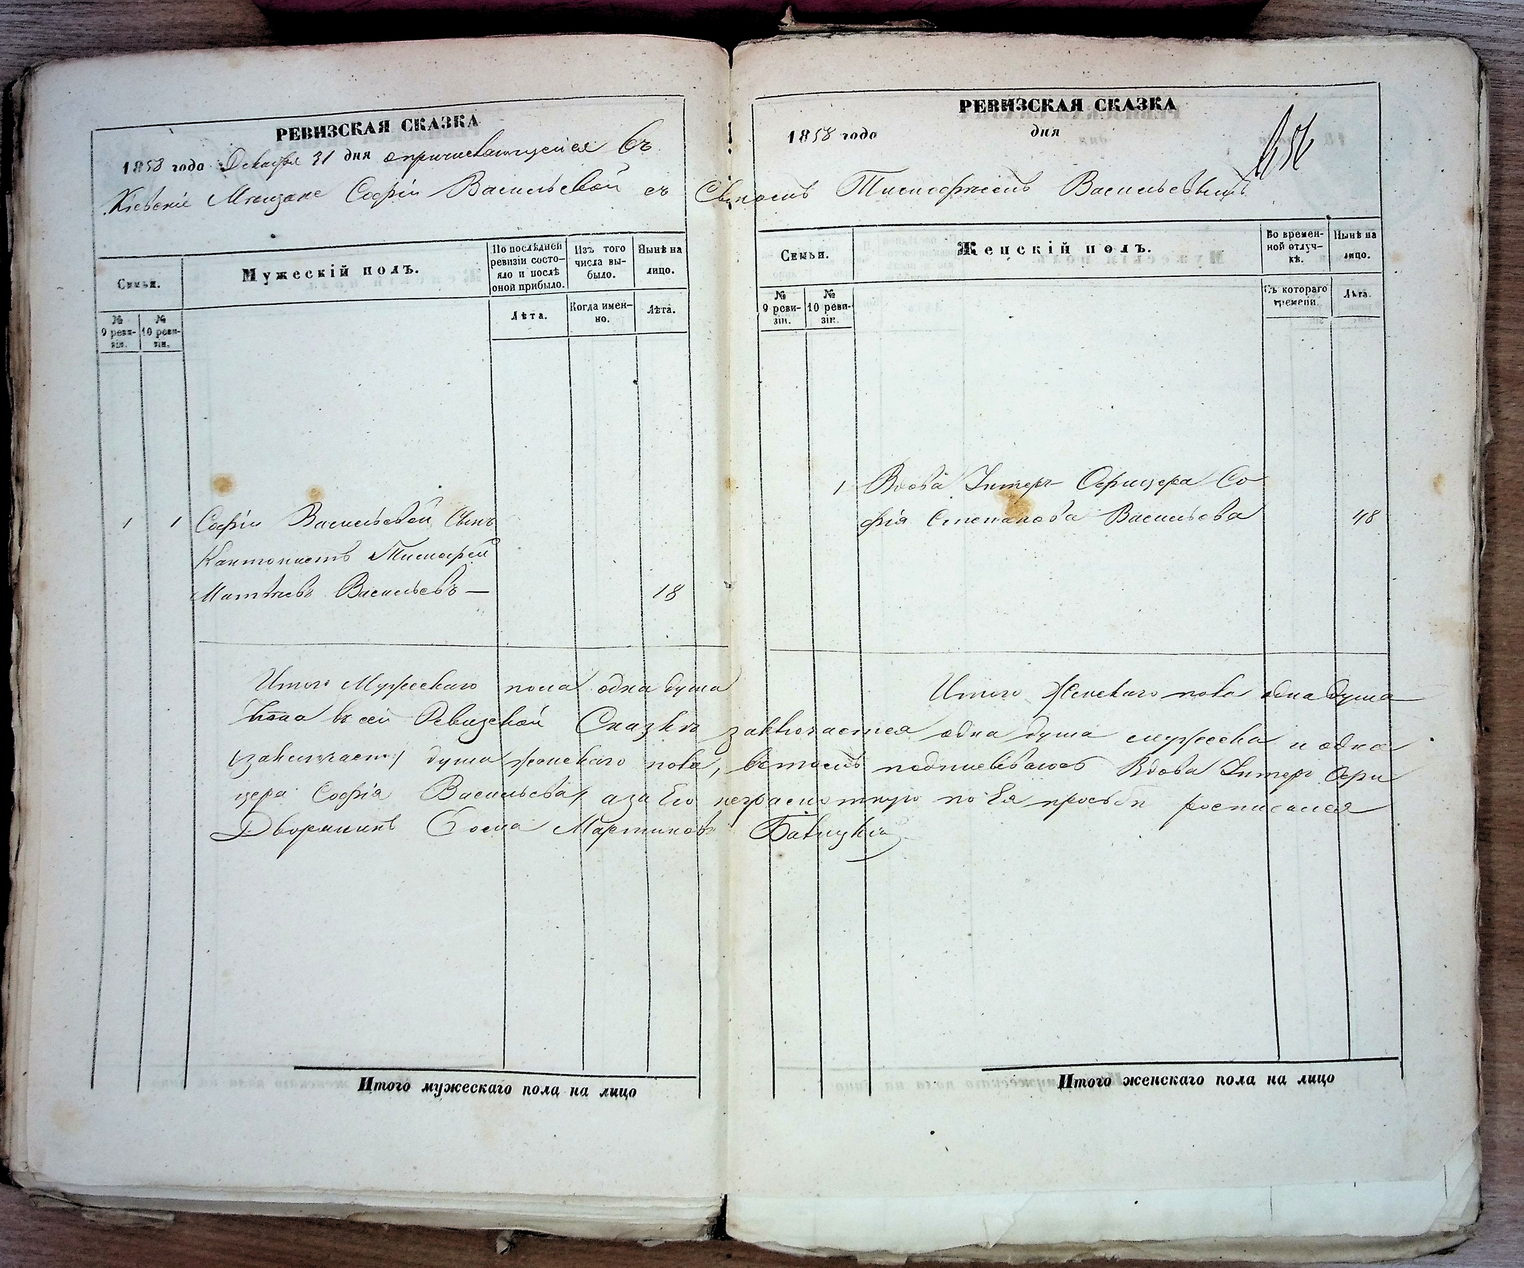 РЕВИЗСКАЯ СКАЗКА
1858 года Декабря 31 дня о причисляющейся въ
Кіевскіе Мещане Софіи Васильевой съ Сыномъ Тимофеемъ Васильевымъ
Семьи.
№ 9 ревизіи.
№ 10 ревизіи.
Мужескій полъ.
По послѣдней
ревизіи состо-
яло и послѣ
оной прибыло.
Лѣта.
Изъ того
числа вы-
было.
Когда имен-
но.
Нынѣ на
лицо.
Лѣта.
1 1 Софіи Васильевой Сынъ
Кантонистъ Тимофей
Матвѣевъ Васильевъ — 18
Итого Мужескаго пола одна душа
Итого мужескаго пола на лицо
РЕВИЗСКАЯ СКАЗКА
1858 года дня
656
Семьи.
№ 9 ревизіи.
№ 10 ревизіи.
Женскій полъ.
Во времен-
ной отлуч-
кѣ.
Съ котораго
времени.
Нынѣ на
лицо.
Лѣта.
1 Вдова Унтеръ Офицера Со
фія Степанова Васильева 48
Итого Женскаго пола одна душа
въ сей Ревизской Сказкѣ заключается одна душа мужеска и одна
душа женскаго пола, въ томъ подписываюсь Вдова Унтеръ Офи
цера Софія Васильева, а за Ея неграмотную по Ея прозьбѣ росписался
Дворянинъ Мартиновъ
Итого женскаго пола на лицо